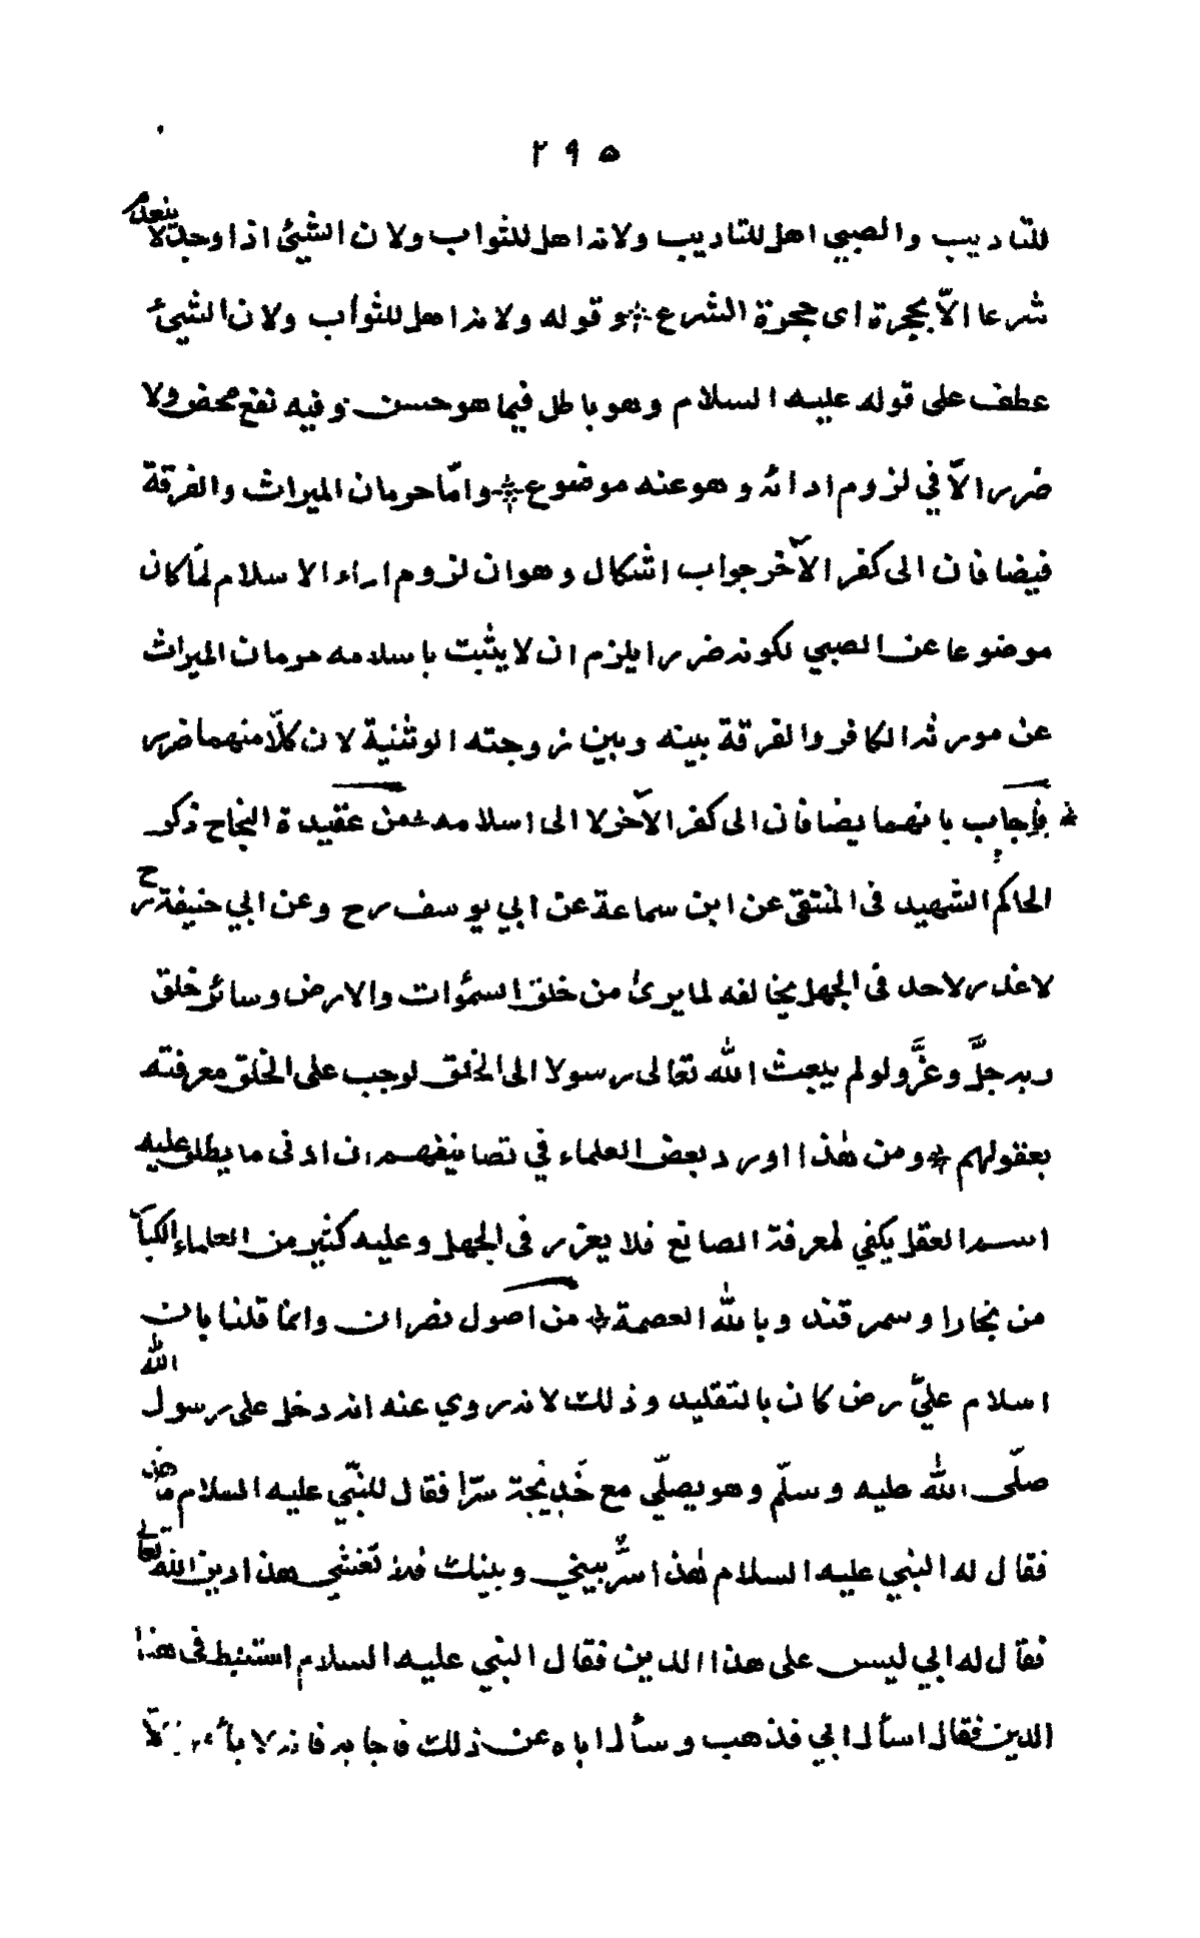 ٢٩٥
للتاديب والصبي اهل للتاديب ولانه اهل للثواب ولان الشيئ اذا وجد لا ينعدم
شرعا الاّ بحجرة اى حجرة الشرع وقوله ولانه اهل للثواب ولان الشيئ
عطف على قوله عليه السلام وهو باطل فيما هو حسن وفيه نفع محض ولا
ضرر الاّ في لزوم ادائه وهو عنه موضوع وامّا حرمان الميراث والفرقة
فيضافان الى كفر الآخر جواب اشكال وهو ان لزوم اداء الاسلام لمّا كان
موضوعا عن الصبي لكونه ضررا يلزم ان لا يثبت باسلامه حرمان الميراث
عن مورثه الكافر والفرقة بينه وبين زوجته الوثنية لان كلّا منهما ضرر
فاجاب بانهما يضافان الى كفر الآخر لا الى اسلامه من عقيدة النجاح ذكر
الحاكم الشهيد فى المنتقى عن ابن سماعة عن ابي يوسف رح وعن ابي حنيفة رح
لا عذر لاحد فى الجهل بخالقه لما يرىٰ من خلق السمٰوات والارض وسائر خلق
ربه جلَّ وعَزَّ ولو لم يبعث الله تعالى رسولا الى الخلق لوجب على الخلق معرفته
بعقولهم ومن هٰذا اورد بعض العلماء في تصانيفهم ان ادنى ما يطلق عليه
اسم العقل يكفي لمعرفة الصانع فلا يعزر فى الجهل وعليه كثير من العلماء الكبا
من بخارا وسمرقند وبالله العصمة من اصول نصران وانما قلنا بان
اسلام عليّ رض كان بالتقليد وذلك لانه روي عنه انه دخل على رسول الله
صلّى الله عليه وسلّم وهو يصلّي مع خديجة سرّا فقال للنبّي عليه السلام ما هذا
فقال له النبي عليه السلام هٰذا سرٌّ بيني وبينك فلا تفشي هذا دين الله تعالى
فقال له ابي ليس على هذا الدين فقال النبي عليه السلام استنبط فى هذا
الدين فقال اسأل ابي فذهب وسأل اباه عن ذلك فاجابه فانه لا